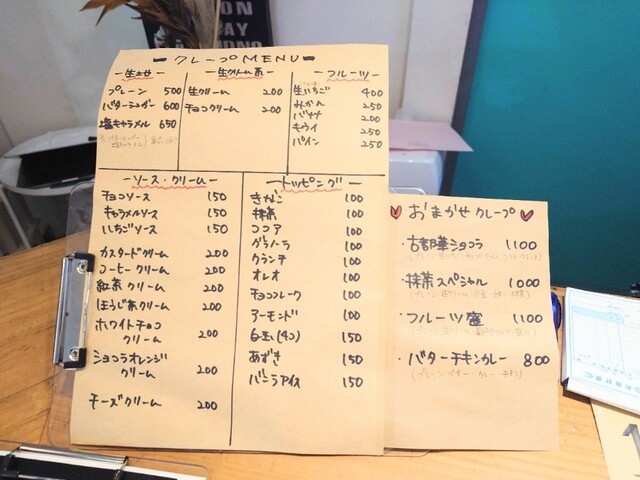 ON
AY
クレープMENU
生地
プレーン 500
バターシュガー 600
塩キャラメル 650
生クリーム系
生クリーム 200
チョコクリーム 200
フルーツ
生いちご 400
みかん 250
バナナ 200
キウイ 250
パイン 250
ソース・クリーム
チョコソース 150
キャラメルソース 150
いちごソース 150
カスタードクリーム 200
コーヒークリーム 200
紅茶クリーム 200
ほうじ茶クリーム 200
ホワイトチョコ
クリーム 200
ショコラオレンジ
クリーム 200
チーズクリーム 200
トッピング
きなこ 100
抹茶 100
ココア 100
グラノーラ 100
クランチ 100
オレオ 100
チョコフレーク 100
アーモンド 100
白玉(4コ) 150
あずき 150
バニラアイス 150
おまかせクレープ
・古都華ショコラ 1100
・抹茶スペシャル 1000
・フルーツ盛 1100
・バターチキンカレー 800
(プレーン・バター・カレー・チキン)